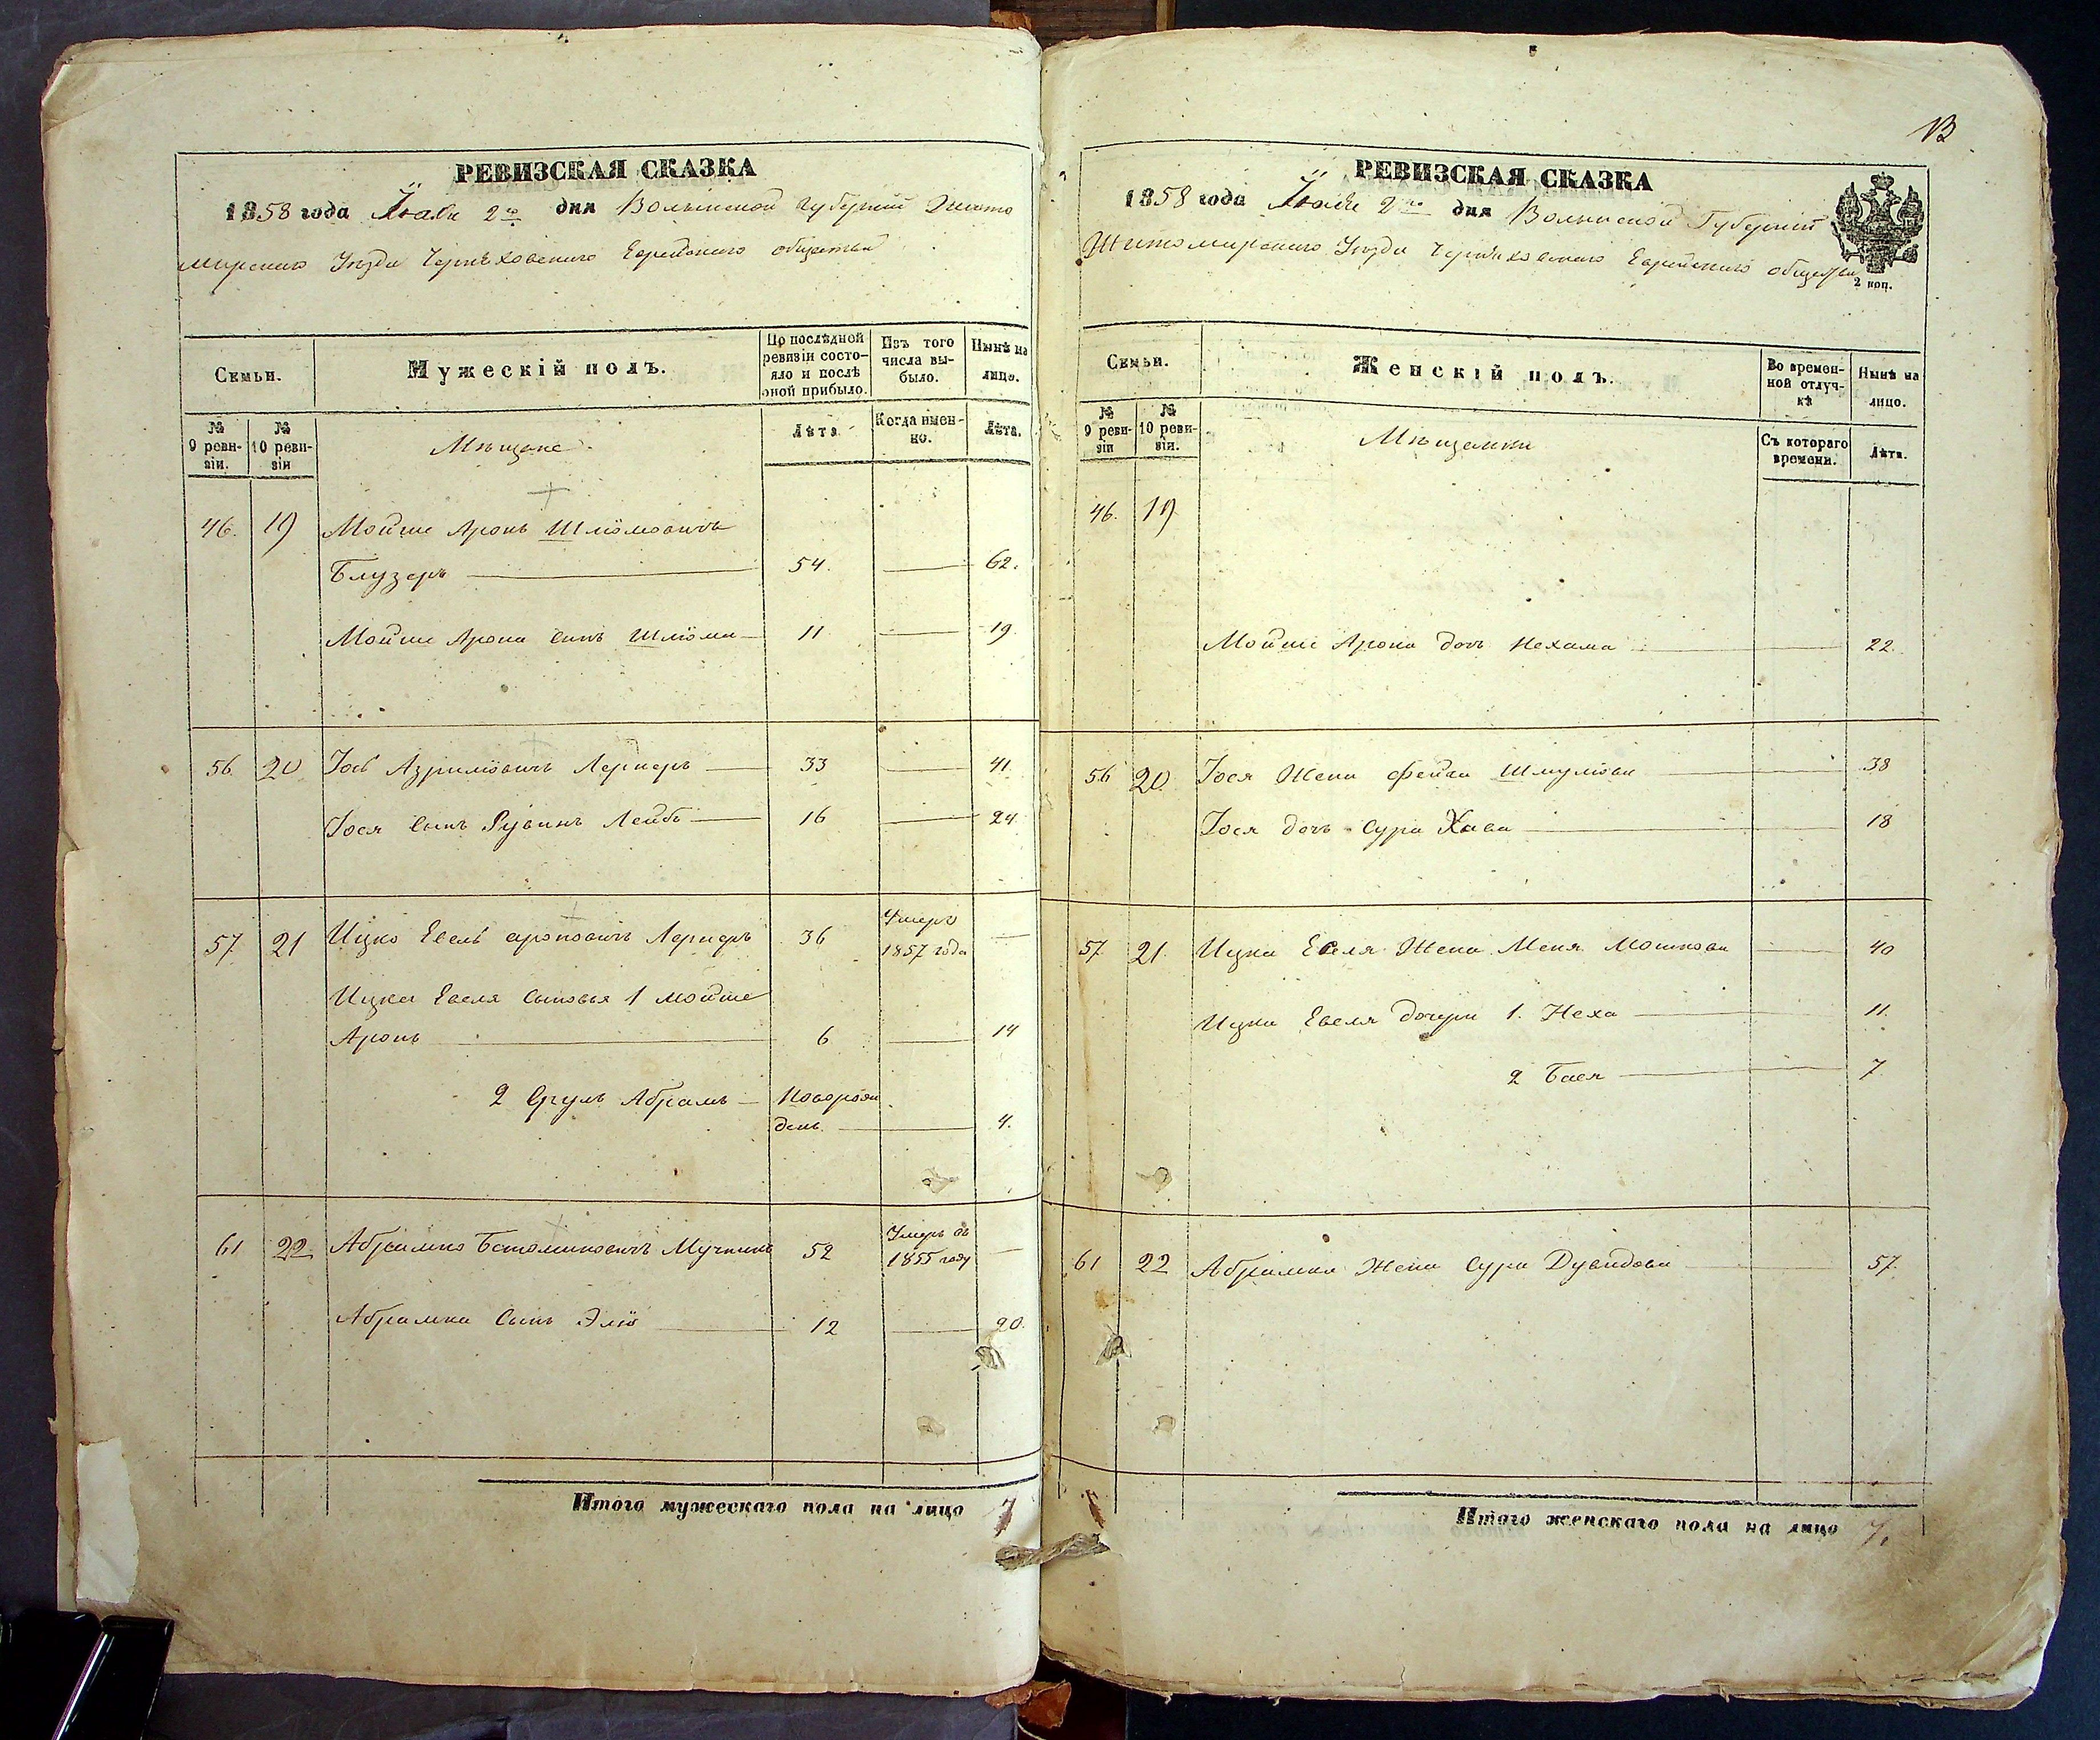 РЕВИЗСКАЯ СКАЗКА
1858 года Іюля 2го дня Волынской Губерніи Жито
мирскаго Уѣзда Черняховскаго Еврейскаго общества
Семьи.
Мужескій полъ.
По послѣдной ревизіи состояло и послѣ оной прибыло.
Изъ того числа выбыло.
Нынѣ на лицо.
№ 9 ревизіи.
№ 10 ревизіи
Мѣщане
Лѣта
Когда именно.
Лѣта.
46. 19 Мойше Аронъ Шліомовичъ
Блузеръ 54. 62.
Мойше Арона сынъ Шліома 11 19
56. 20 Іось Азриліовичъ Лернеръ 33 41
Іося сынъ Рувинъ Лейбъ 16 24
57 21 Ицко Евель ароновичъ Лернеръ 36 Умеръ
1857 года
Ицка Евеля сыновья 1 Мойше
Аронъ 6 14
2 Сруль Абрамъ Новорож
денъ 4.
61 22 Абрамко Мучникъ 52 Умеръ въ
1855 году
Абрамка сынъ Эліо 12 20.
Итого мужескаго пола на лицо 7
13
РЕВИЗСКАЯ СКАЗКА
1858 года Іюля 2го дня Волынской Губерніи
Житомирскаго Уѣзда Черняховскаго Еврейскаго общества
2 коп.
Семьи.
Женскій полъ.
Во временной отлучкѣ
Нынѣ на лицо.
№ 9 ревизіи
№ 10 ревизіи.
Мѣщанки
Съ котораго времени.
Лѣта.
46. 19
Мойше Арона дочь Нехама 22.
56 20 Іося Жена Фейга Шмуліова 38
Іося дочь Сура Хава 18
57 21. Ицка Евеля Жена Меня Мошкова 40
Ицка Евеля дочери 1. Неха 11.
2 Бася 7
61 22 Абрамка Жена Сура Дувидова 57.
Итого женскаго пола на лицо 7.